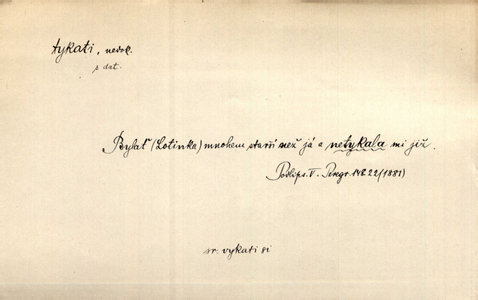 tykati, nedok.
s dat.
Bylať (Lotinka) mnohem starší než já a netykala mi již.
Podlips. V. Pengr. 148.22 (1881)
sr. vykati si